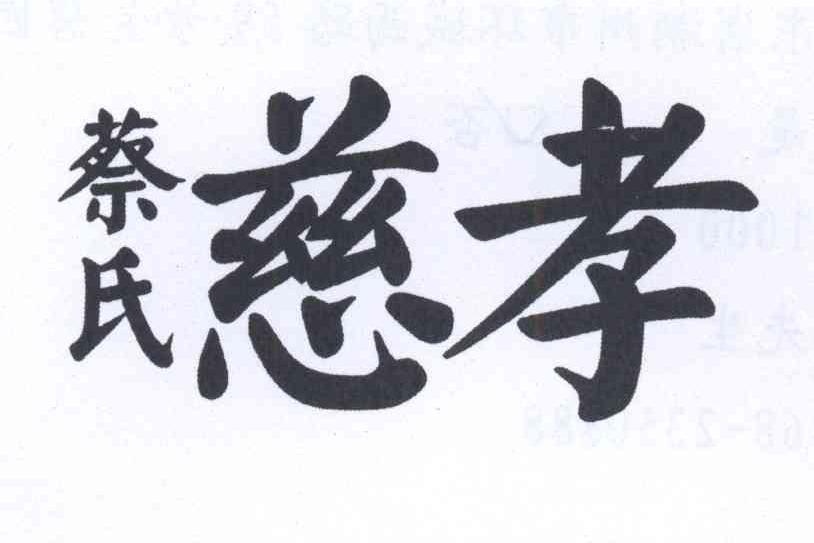 蔡氏
慈孝